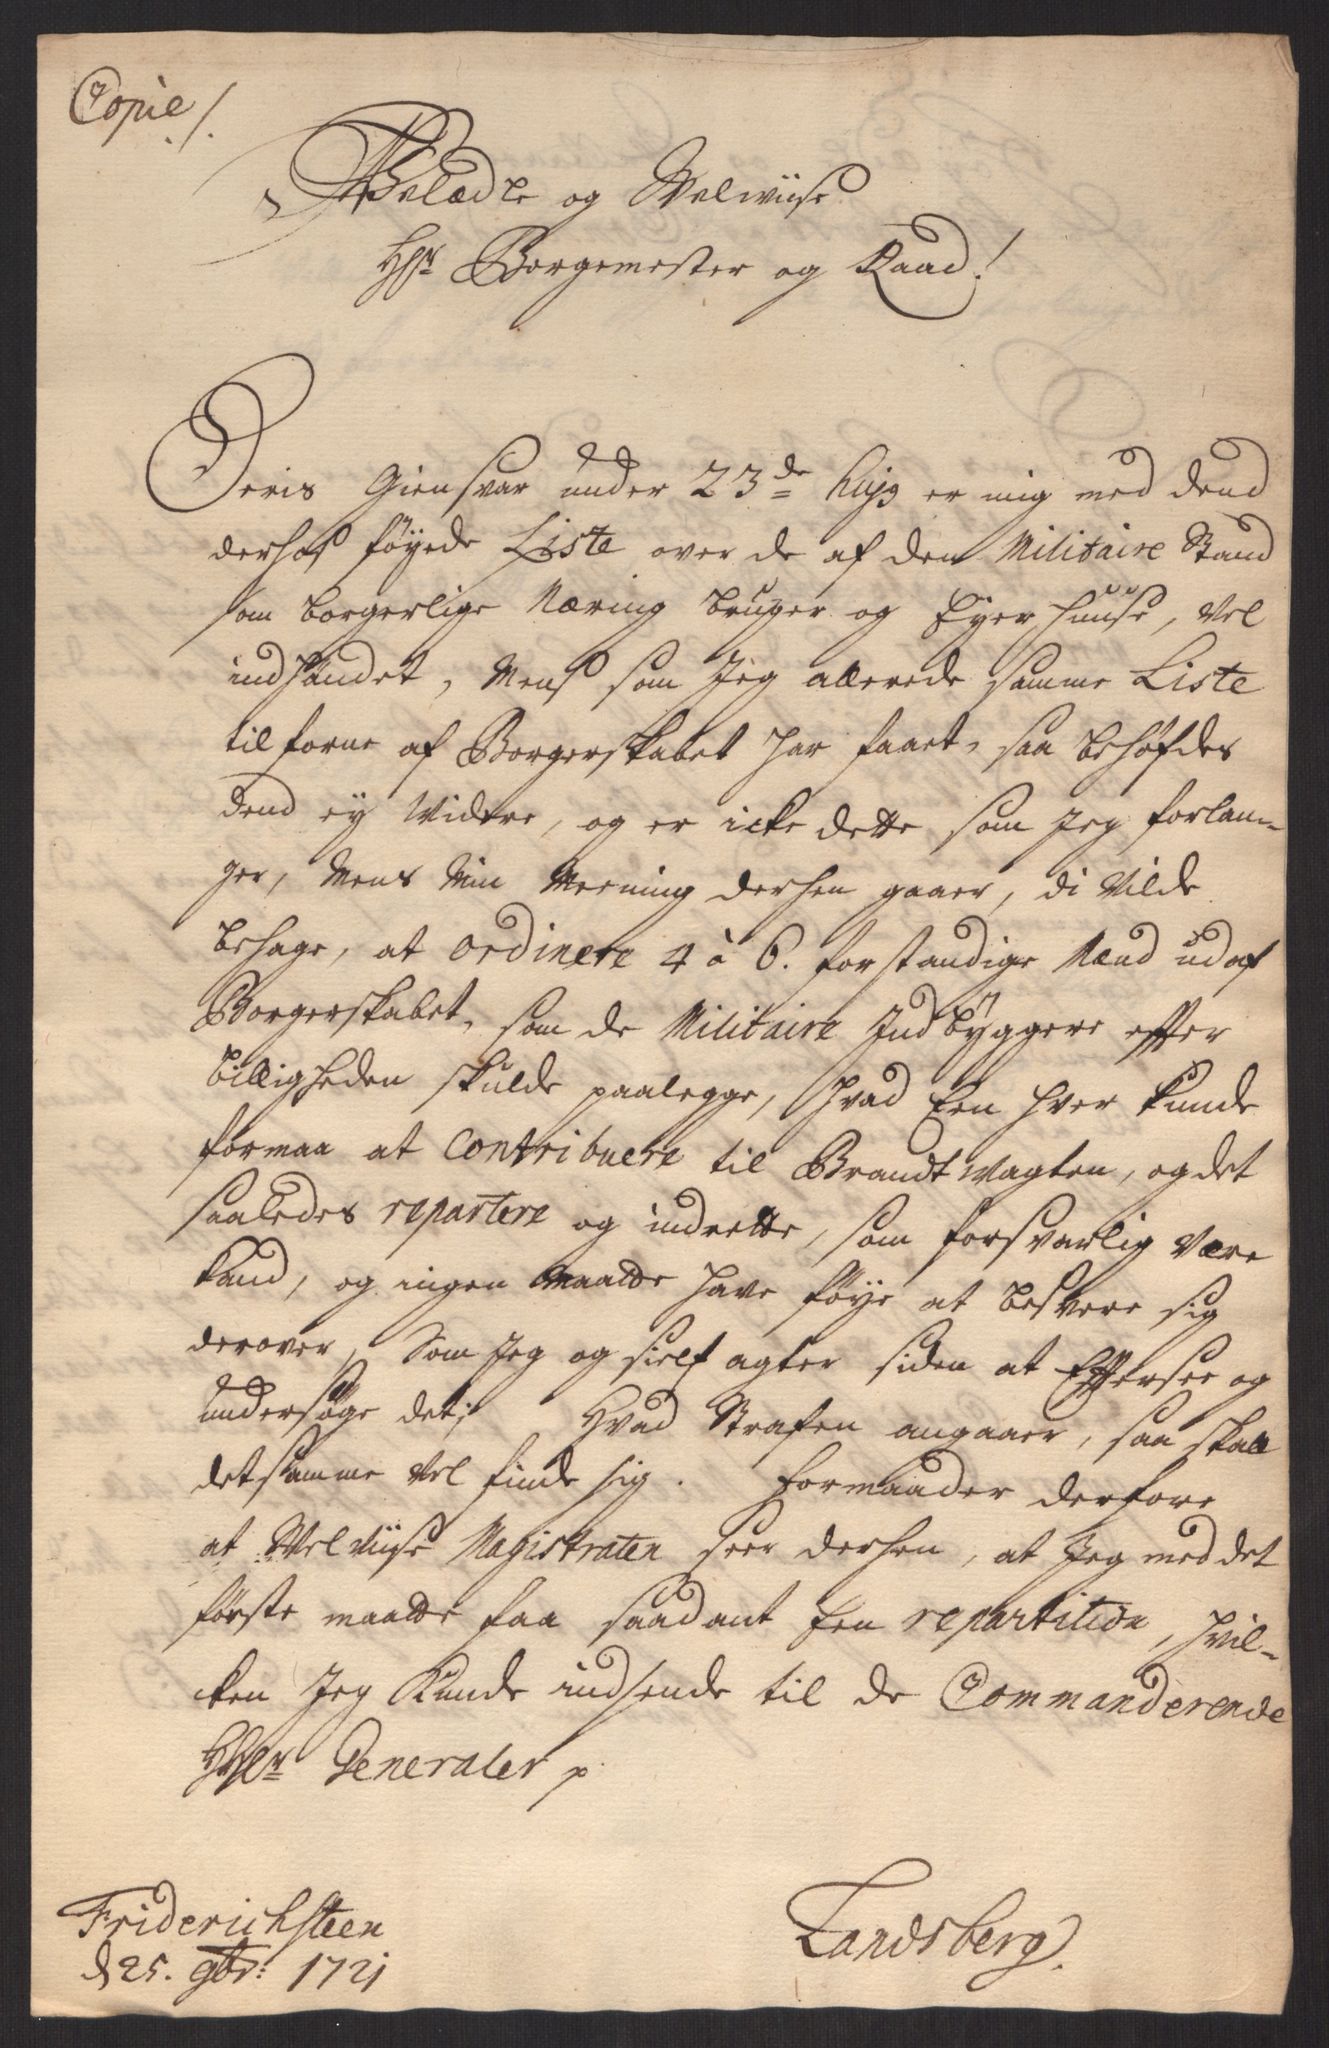 Copie /.
Velædle og Welwiise
HHr. Borgemester og Raad!
Deris Giensvar under 23de hujs er mig med dend
derhos föyede Liste over de af den Militaire Stand
som borgerlige Næring bruger og Eyer huuse, Vel
indhændet, Mens som Jeg allerede samme Liste
tilforne af Borgerskabet har faaet, saa behöfdes
dend ey Widere, og er icke dette som Jeg forlan-
ger, Mens Min Meening derhen gaaer, di Vilde
behage, at ordinere 4 à 6. forstandige Mænd ud af
Borgerskabet, som de Militaire Indbÿggere efter
billigheden skulde paalegge, hvad Een hver kunde
formaa at Contribuere til Brandt Wagten, og det
saaledes repartere og indrette, som forsvarlig være
kand, og ingen maatte have föÿe at besvere sig
derover, Som Jeg og sielf agter siden at Eftersee og
undersöge det; Hvad Straffen angaaer, saa skall
det samme Vel finde sig. Formaader derfore
at Welviise Magistraten seer derhen, at Jeg med det
förste maatte faa saadant Een repartition, hvil-
cken Jeg Kunde indsende til de Commanderende
HHr. Generaler p.
Friderichsteen
d 25. 9br: 1721
Landsberg.